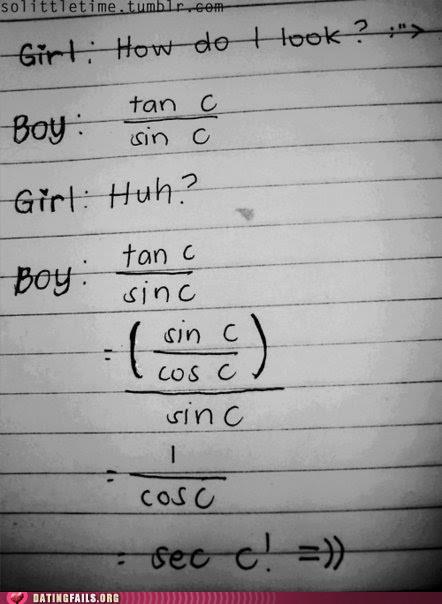 solittletime.tumblr.com
Girl: How do I look? :">
Boy: tan c
sin c
Girl: Huh?
Boy: tan c
sin c
= ( sin c
cos c )
sin c
= 1
cos c
= sec c! =))
DATINGFAILS.ORG